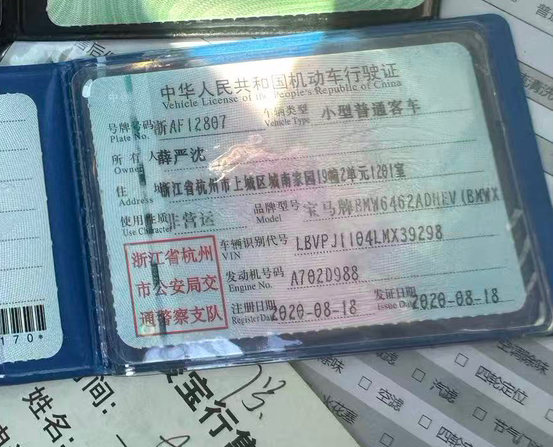 中华人民共和国机动车行驶证
Vehicle License of the People's Republic of China
号牌号码 浙AF12807 车辆类型 小型普通客车
Plate No. Vehicle Type
所有人 薛严沈
Owner
住 浙江省杭州市上城区城南家园19幢2单元1201室
Address
使用性质 非营运 品牌型号 宝马牌BMW6462ADHEV(BMWX
Use Character Model
浙江省杭州
市公安局交
通警察支队
车辆识别代号 LBVPJ1104LMX39298
VIN
发动机号码 A702D988
Engine No.
注册日期 2020-08-18 发证日期 2020-08-18
Register Date Issue Date
170*
宝行售
间:
姓名:
空调除味
四轮定位
节气门
汽滤
空滤
火花塞